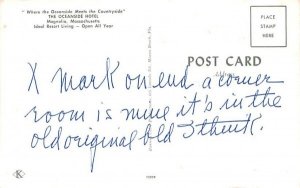 "Where the Oceanside Meets the Countryside"
THE OCEANSIDE HOTEL
Magnolia, Massachusetts
Ideal Resort Living — Open All Year
PLACE
STAMP
HERE
POST CARD
X Mark on end a corner
room is mine it's in the
old original bld I think.
K